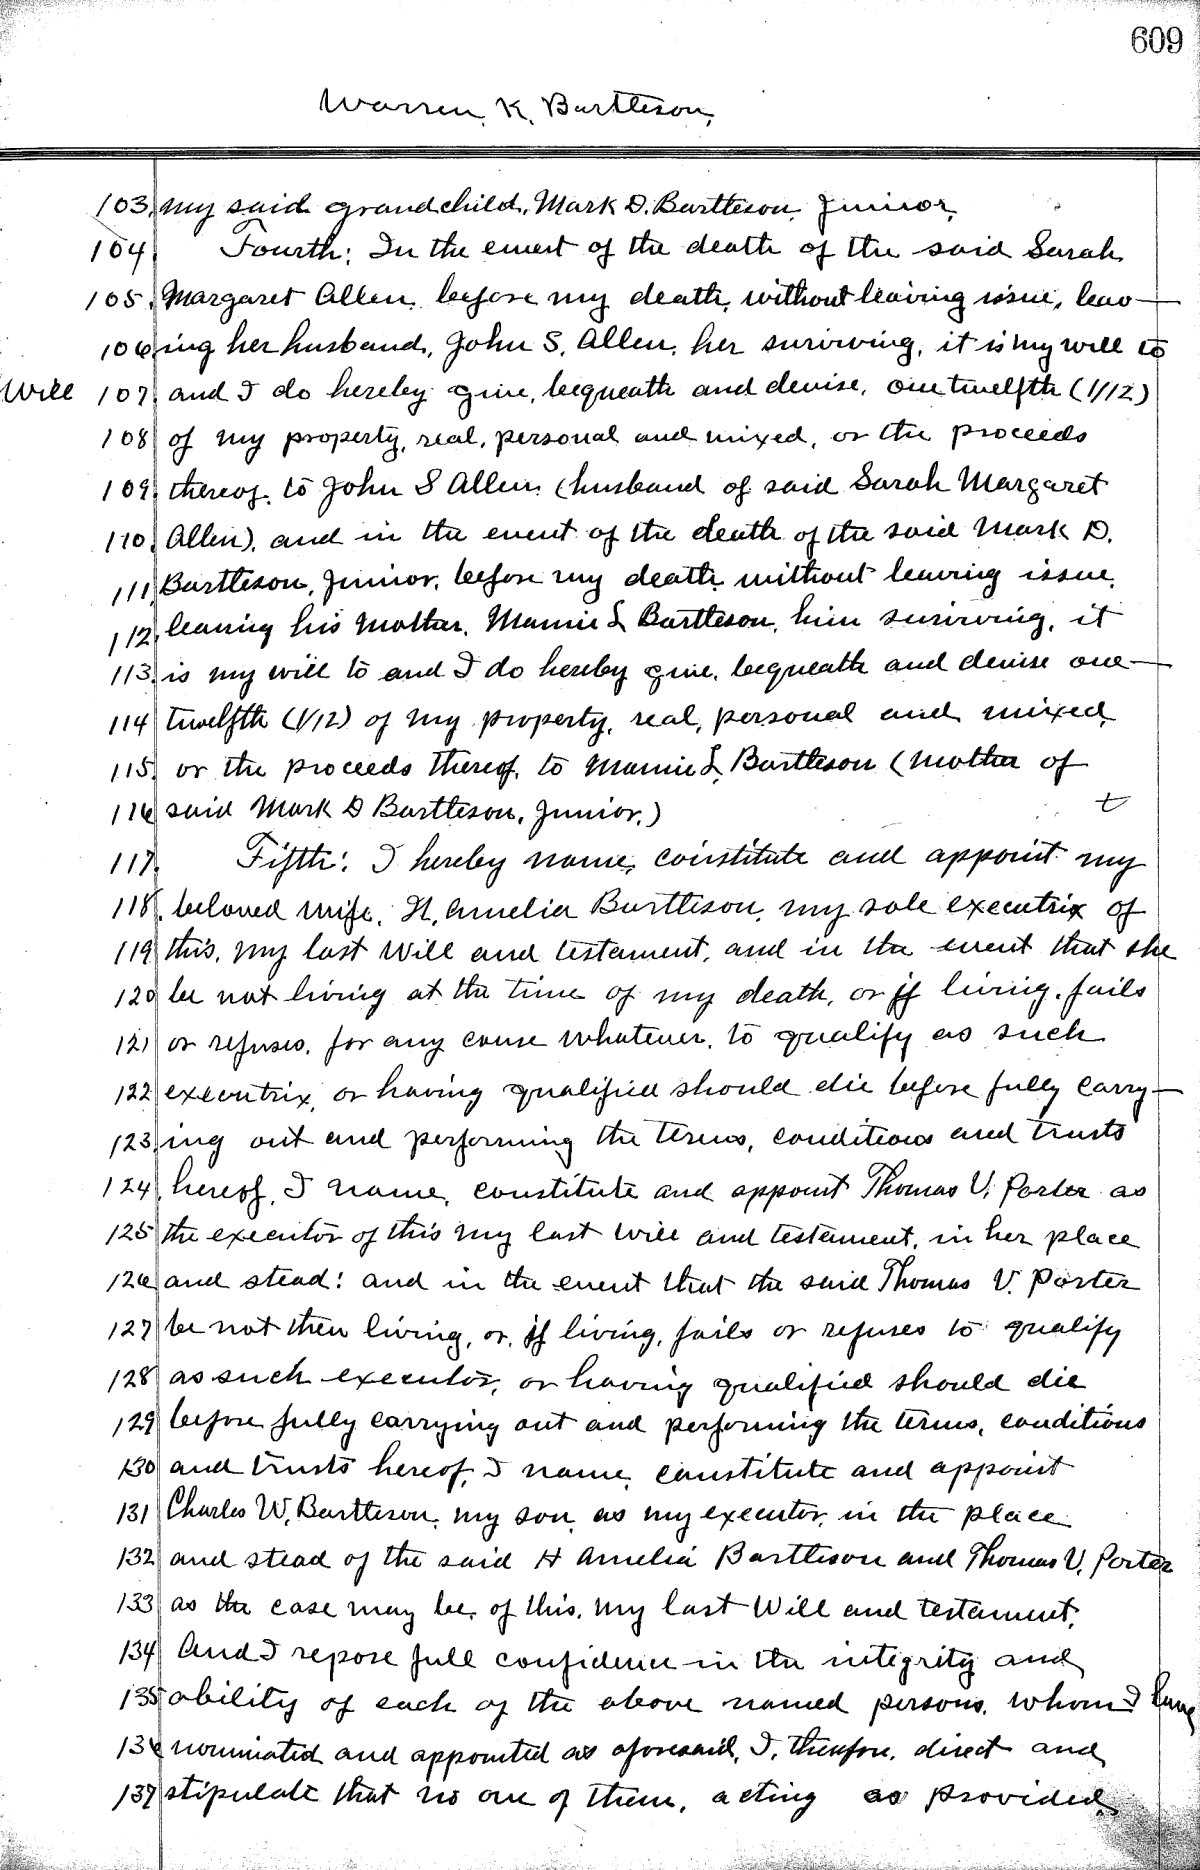 609
Warren K. Bartleson,
103. my said grandchild, Mark D. Bartleson, Junior,
104. Fourth: In the event of the death of the said Sarah
105. Margaret Allen, before my death, without leaving issue, leav-
106 ing her husband, John S. Allen, her surviving, it is my will to
Will 107. and I do hereby give, bequeath and devise, one twelfth (1/12)
108 of my property, real, personal and mixed, or the proceeds
109. thereof, to John S Allen, (husband of said Sarah Margaret
110. Allen), and in the event of the death of the said Mark D.
111. Bartleson, Junior, before my death, without leaving issue,
112. leaving his mother, Mamie L Bartleson, him surviving, it
113. is my will to and I do hereby give, bequeath and devise one-
114 twelfth (1/12) of my property, real, personal and mixed,
115. or the proceeds thereof, to Mamie L. Bartleson (mother of
116 said Mark D Bartleson, Junior.)
117. Fifth: I hereby name, constitute and appoint my
118. beloved wife, H. Amelia Bartleson, my sole executrix of
119 this, my last Will and testament, and in the event that she
120 be not living at the time of my death, or if living, fails
121 or refuses, for any cause whatever, to qualify as such
122 executrix, or having qualified should die before fully carry-
123. ing out and performing the terms, conditions and trusts
124. hereof, I name, constitute and appoint Thomas V. Porter as
125 the executor of this my last will and testament, in her place
126 and stead: and in the event that the said Thomas V. Porter
127 be not then living, or, if living, fails or refuses to qualify
128 as such executor, or having qualified should die
129 before fully carrying out and performing the terms, conditions
130 and trusts hereof, I name, constitute and appoint
131 Charles W. Bartleson, my son, as my executor, in the place
132 and stead of the said H Amelia Bartleson and Thomas V. Porter
133 as the case may be, of this, my last Will and testament.
134 And I repose full confidence in the integrity and
135 ability of each of the above named persons, whom I have
136 nominated and appointed as aforesaid, I, therefore, direct and
137 stipulate that no one of them, acting as provided,